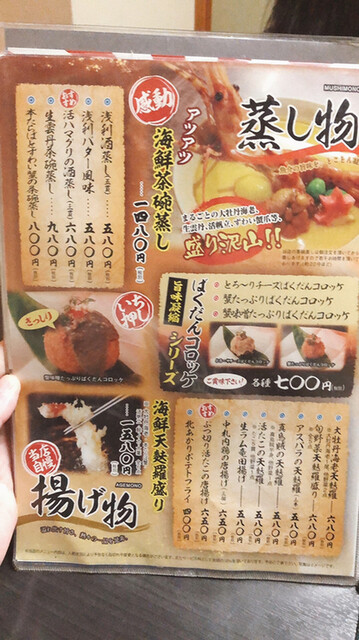 蒸し物
MUSHIMONO
感動
アツアツ
海鮮茶碗蒸し
一四八〇円
まるごとの大牡丹海老、
生雲丹、活帆立、ずわい蟹爪等、
盛り沢山!!
浅利酒蒸し 五八〇円
浅利バター風味 五八〇円
おすすめ
活ハマグリの酒蒸し 六八〇円
生雲丹茶碗蒸し 九八〇円
本たらばとずわい蟹の茶碗蒸し 八〇〇円
いち押し
ぎっしり
蟹味噌たっぷりばくだんコロッケ
旨味凝縮
ばくだんコロッケ
シリーズ
とろ〜りチーズばくだんコロッケ
蟹たっぷりばくだんコロッケ
蟹味噌たっぷりばくだんコロッケ
ご賞味下さい!
各種七〇〇円
当店自慢
揚げ物
AGEMONO
海鮮天麩羅盛り
一五八〇円
大牡丹海老天麩羅 六八〇円
旬野菜天麩羅盛り 六八〇円
アスパラの天麩羅 五八〇円
真烏賊の天麩羅 五八〇円
活たこの天麩羅 五八〇円
生ラム竜田揚げ 六五〇円
中札内鶏の唐揚げ 六五〇円
おすすめ
ぶつ切り活たこの唐揚げ 六五〇円
北あかりポテトフライ 四〇〇円